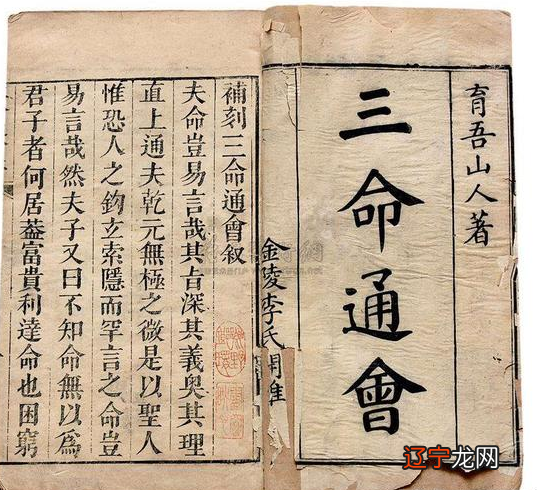 育吾山人著
三命通會
金陵李氏
補刻三命通會叙
夫命豈易言哉其㫖深其義奥其理
直上通夫乾元無極之微是以聖人
惟恐人之鉤玄索隱而罕言之命豈
易言哉然夫子又曰不知命無以爲
君子者何居葢富貴利達命也困窮
辽宁龙网